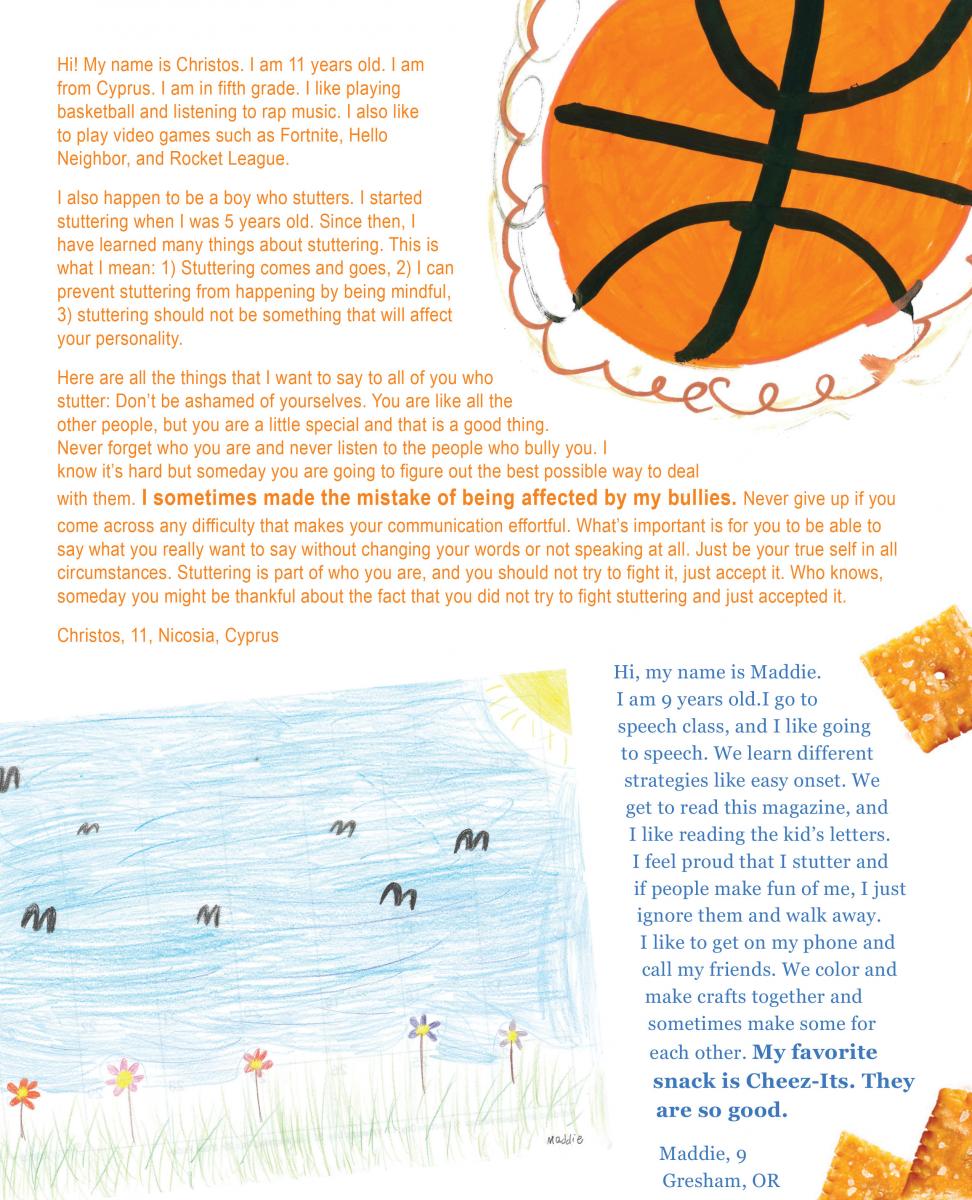 Hi! My name is Christos. I am 11 years old. I am
from Cyprus. I am in fifth grade. I like playing
basketball and listening to rap music. I also like
to play video games such as Fortnite, Hello
Neighbor, and Rocket League.
I also happen to be a boy who stutters. I started
stuttering when I was 5 years old. Since then, I
have learned many things about stuttering. This is
what I mean: 1) Stuttering comes and goes, 2) I can
prevent stuttering from happening by being mindful,
3) stuttering should not be something that will affect
your personality.
Here are all the things that I want to say to all of you who
stutter: Don’t be ashamed of yourselves. You are like all the
other people, but you are a little special and that is a good thing.
Never forget who you are and never listen to the people who bully you. I
know it’s hard but someday you are going to figure out the best possible way to deal
with them. I sometimes made the mistake of being affected by my bullies. Never give up if you
come across any difficulty that makes your communication effortful. What’s important is for you to be able to
say what you really want to say without changing your words or not speaking at all. Just be your true self in all
circumstances. Stuttering is part of who you are, and you should not try to fight it, just accept it. Who knows,
someday you might be thankful about the fact that you did not try to fight stuttering and just accepted it.
Christos, 11, Nicosia, Cyprus
Hi, my name is Maddie.
I am 9 years old.I go to
speech class, and I like going
to speech. We learn different
strategies like easy onset. We
get to read this magazine, and
I like reading the kid’s letters.
I feel proud that I stutter and
if people make fun of me, I just
ignore them and walk away.
I like to get on my phone and
call my friends. We color and
make crafts together and
sometimes make some for
each other. My favorite
snack is Cheez-Its. They
are so good.
Maddie, 9
Gresham, OR
Maddie